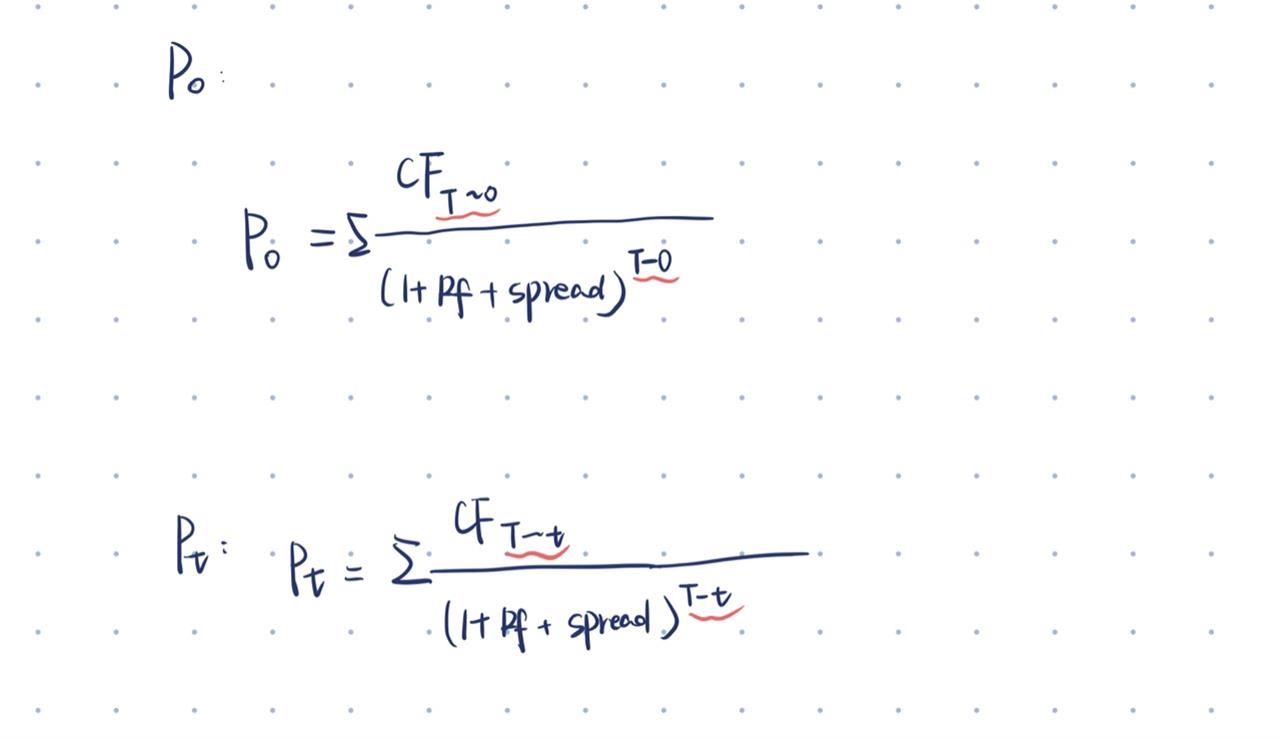 P₀:
P₀ = Σ CF_{T~0} / (1+Rf+spread)^{T-0}
P_t: P_t = Σ CF_{T~t} / (1+Rf+spread)^{T-t}